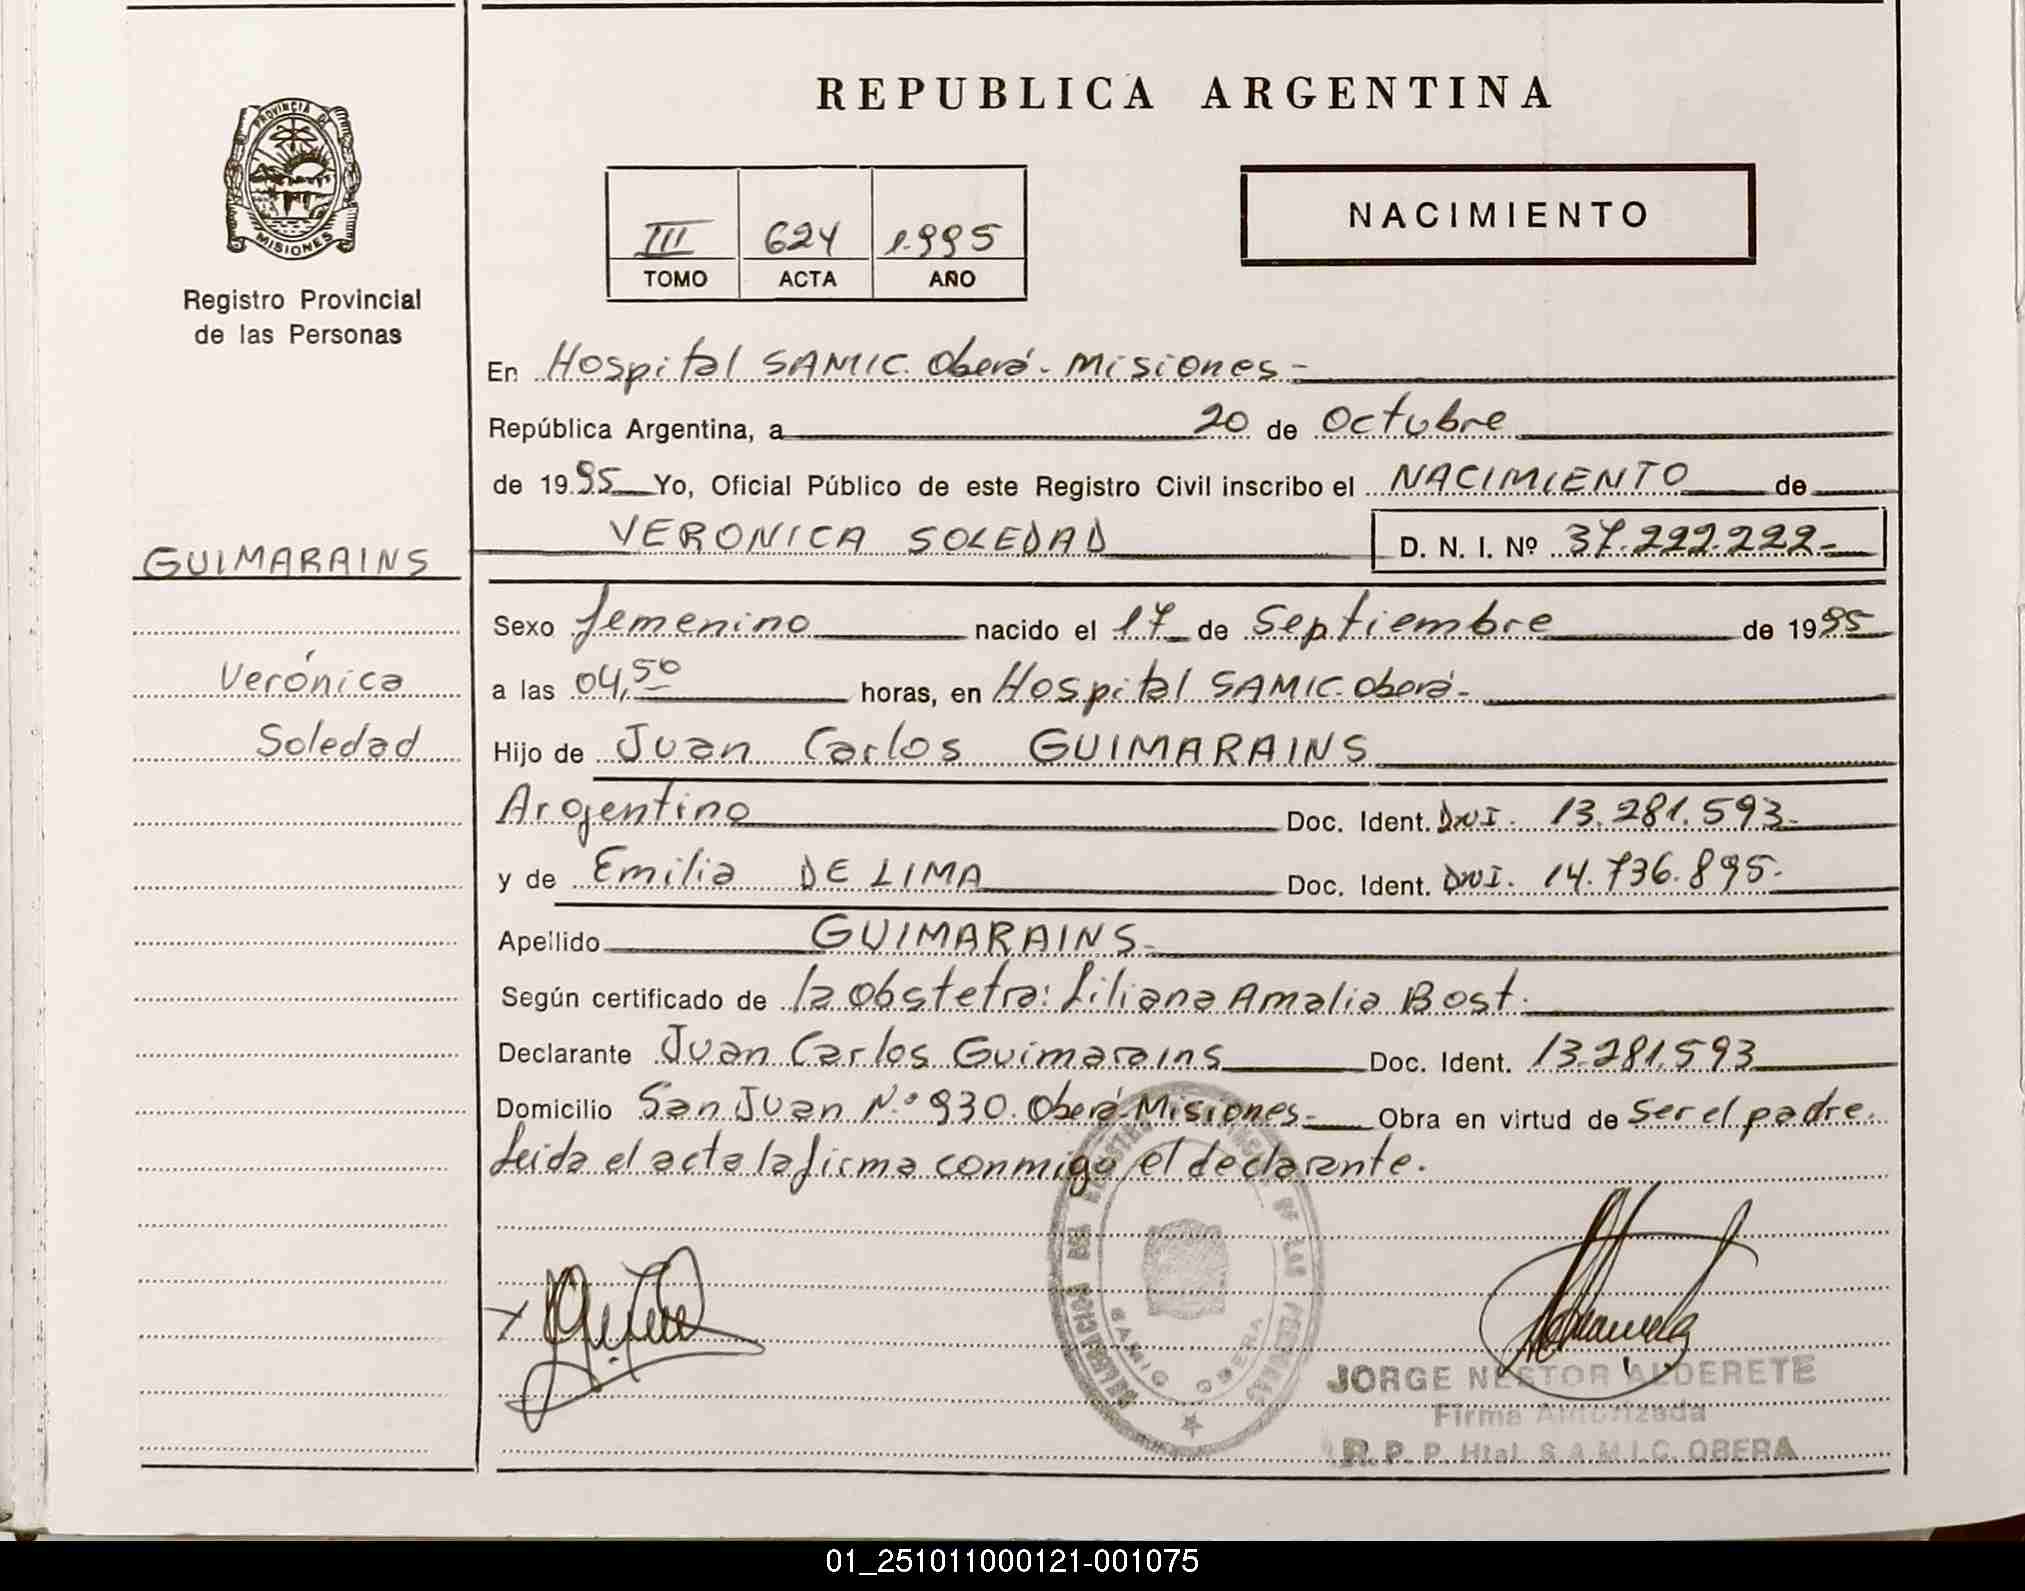 REPUBLICA ARGENTINA
PROVINCIA DE
MISIONES
Registro Provincial
de las Personas
III 624 1.995
TOMO ACTA AÑO
NACIMIENTO
En Hospital SAMIC. Oberá - Misiones -
República Argentina, a 20 de Octubre
de 1995 Yo, Oficial Público de este Registro Civil inscribo el NACIMIENTO de
VERONICA SOLEDAD D. N. I. Nº 37.222.222-
GUIMARAINS
Verónica
Soledad
Sexo femenino nacido el 17 de Septiembre de 1995
a las 04,50 horas, en Hospital SAMIC. Oberá -
Hijo de Juan Carlos GUIMARAINS
Argentino Doc. Ident. DNI. 13.281.593-
y de Emilia DE LIMA Doc. Ident. DNI. 14.736.895-
Apellido GUIMARAINS-
Según certificado de la obstetra: Liliana Amalia Bost.
Declarante Juan Carlos Guimarains Doc. Ident. 13.281.593
Domicilio San Juan N.º 930. Oberá-Misiones- Obra en virtud de ser el padre.
Leida el acta la firma conmigo el declarante.
DELEGACION DEL REGISTRO PROVINCIAL DE LAS PERSONAS
SAMIC OBERA
JORGE NESTOR ALDERETE
Firma Autorizada
R. P. P. Htal. S.A.M.I.C. OBERA
01_251011000121-001075